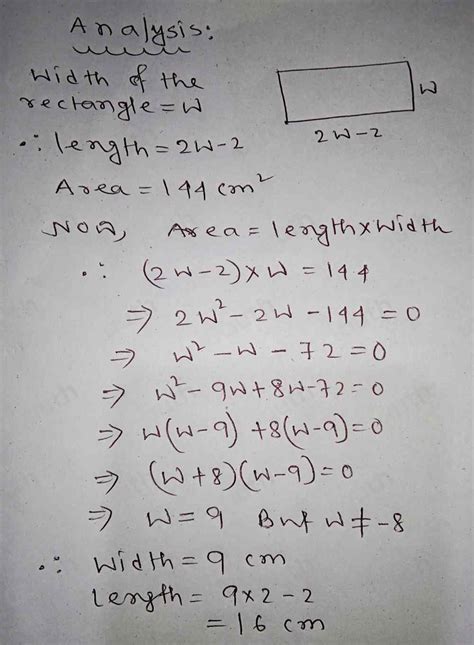 Analysis:
Width of the
rectangle = W
W
2W-2
∴ length = 2W-2
Area = 144 cm²
NOW, Area = length x Width
∴ (2W-2) x W = 144
⇒ 2W² - 2W - 144 = 0
⇒ W² - W - 72 = 0
⇒ W² - 9W + 8W - 72 = 0
⇒ W(W-9) + 8(W-9) = 0
⇒ (W+8)(W-9) = 0
⇒ W = 9 But W ≠ -8
∴ Width = 9 cm
Length = 9x2 - 2
= 16 cm